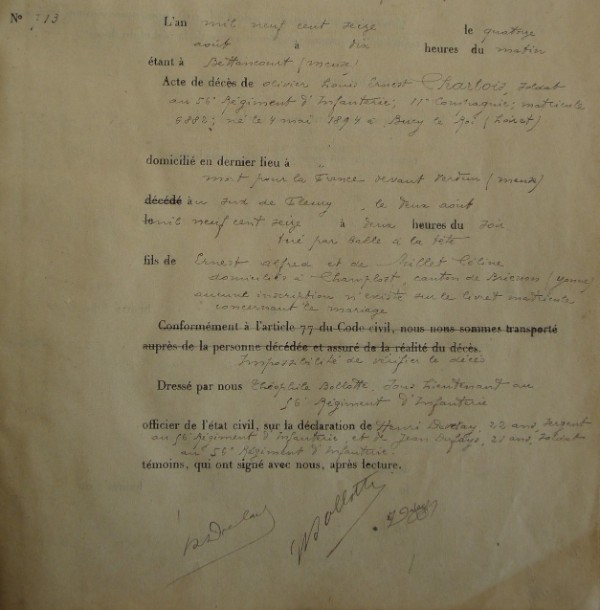 N° 13
L'an mil neuf cent seize le quatorze
août à dix heures du matin
étant à Bettancourt (Meuse)
Acte de décès de Olivier Louis Ernest Charlois, soldat
au 56e Régiment d'Infanterie, 11e Compagnie; matricule
8882; né le 4 mai 1894 à Bucy le Roi (Loiret)
domicilié en dernier lieu à
mort pour la France devant Verdun (Meuse)
décédé au sud de Fleury le deux août
mil neuf cent seize à deux heures du soir
tué par balle à la tête
fils de Ernest Alfred et de Millet Céline
domiciliés à Champlost, canton de Brienon (Yonne)
aucune inscription n'existe sur le livret matricule
concernant le mariage
Conformément à l'article 77 du Code civil, nous nous sommes transporté
auprès de la personne décédée et assuré de la réalité du décès.
Impossibilité de vérifier le décès
Dressé par nous Théophile Bollotte, Sous Lieutenant au
56e Régiment d'Infanterie
officier de l'état civil, sur la déclaration de Henri 22 ans, sergent
au 56e Régiment d'Infanterie, et de Jean ans, soldat
au 56e Régiment d'Infanterie.
témoins, qui ont signé avec nous, après lecture.
Bollotte